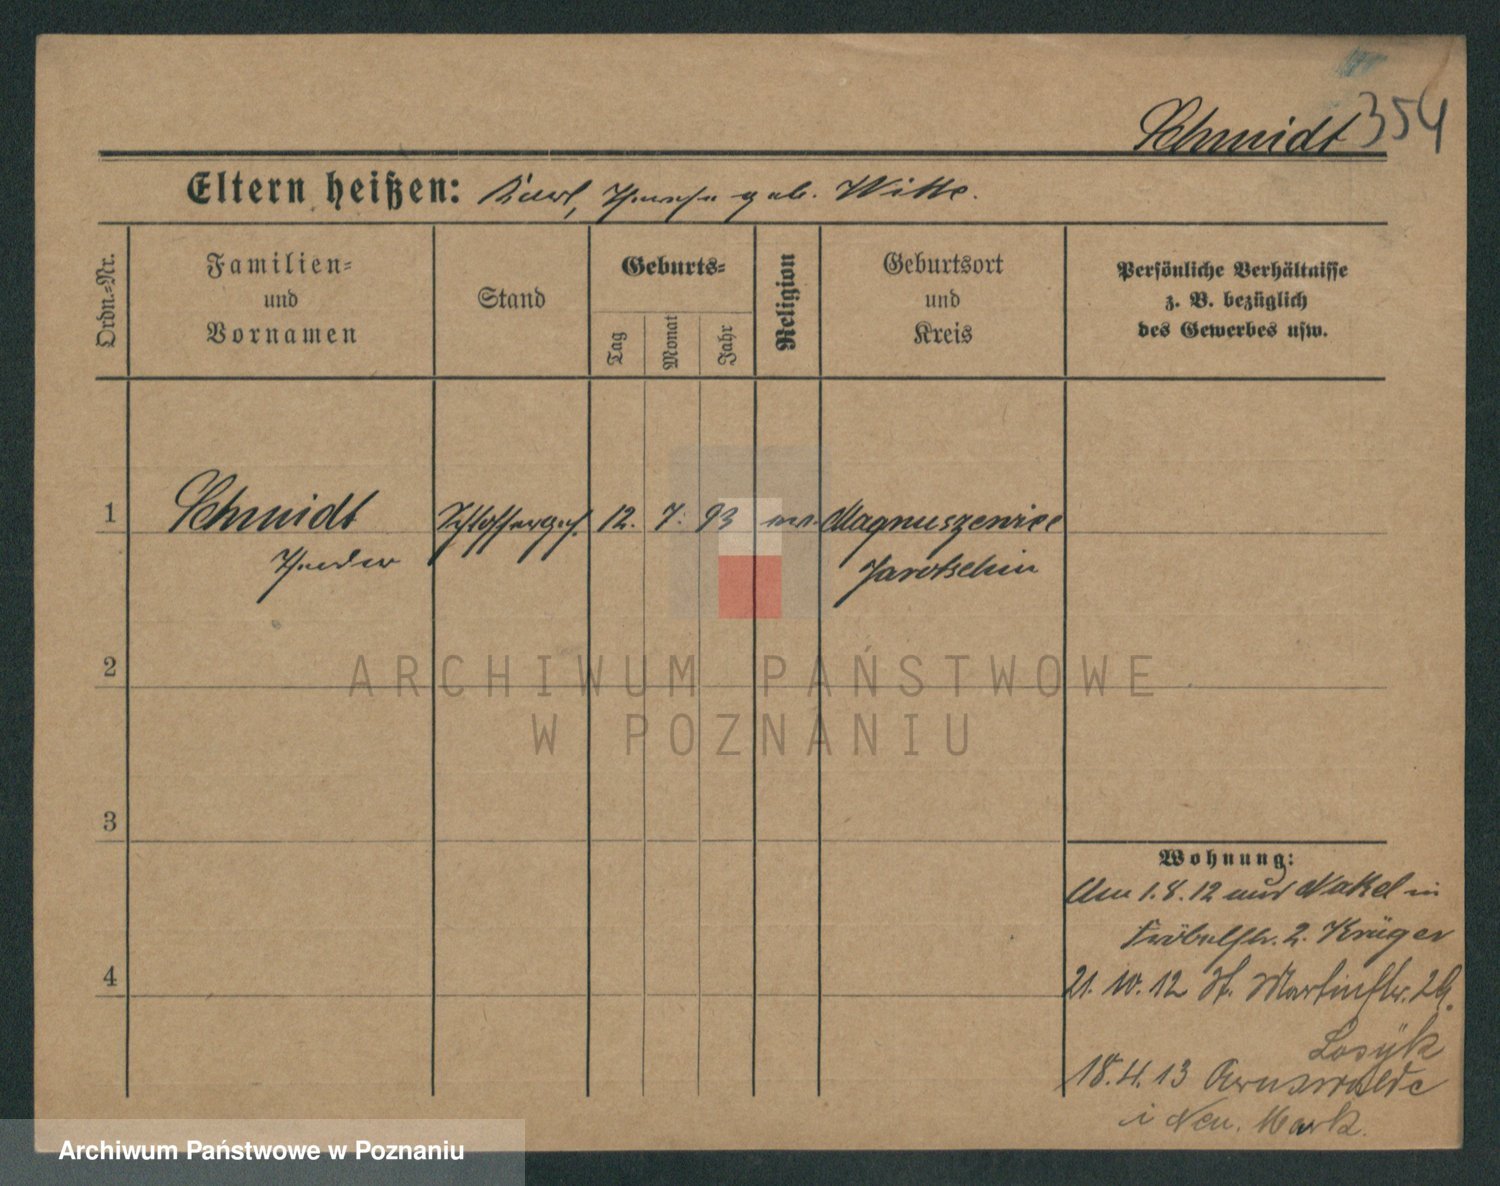 Schmidt 354
Eltern heißen: Karl, Therese geb. Witte.
Ordn.=Nr.
Familien=
und
Vornamen
Stand
Geburts=
Tag
Monat
Jahr
Religion
Geburtsort
und
Kreis
Persönliche Verhältnisse
z. B. bezüglich
des Gewerbes usw.
1 Schmidt Schlosserges. 12. 7. 93 Magnuszewice
Theodor Jarotschin
2
3
4
Wohnung:
Am 1.8.12 aus Nakel in
Fröbelstr. 2. Krüger
21. 10. 12 St. Martinstr.
18.4.13 Arnswalde
i Neu. Mark.
ARCHIWUM PAŃSTWOWE
W POZNANIU
Archiwum Państwowe w Poznaniu